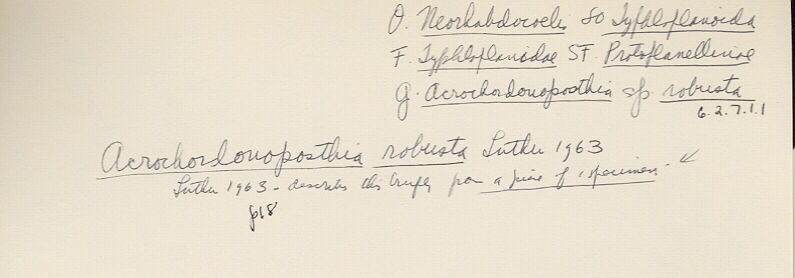 O. Neorhabdocoela SO Typhloplanoida
F. Typhloplanidae SF. Protoplanellinae
G. Acrochordonoposthia sp robusta
6.2.7.1.1
Acrochordonoposthia robusta Luther 1963
Luther 1963 - describes this briefly from a piece of specimen.
p18